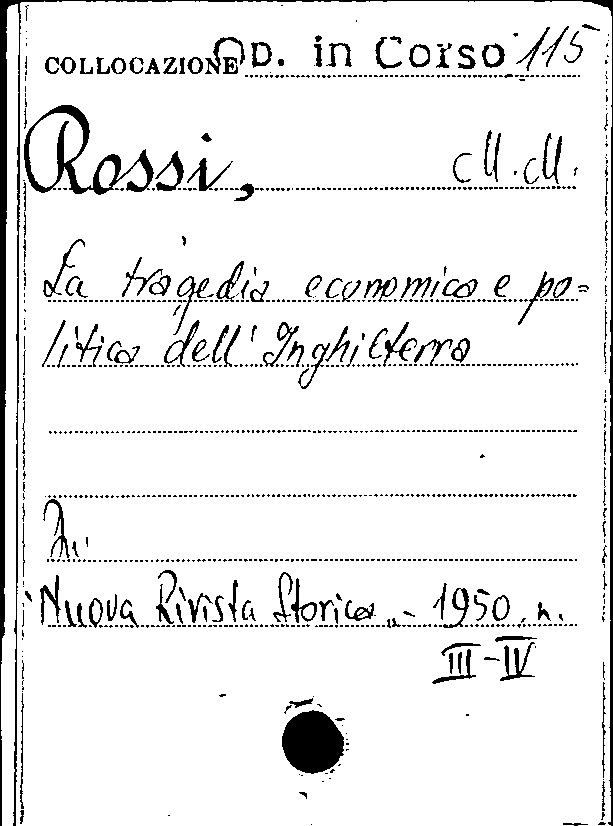 COLLOCAZIONE Op. in Corso 115
Rossi, M. M.
La tragedia economica e po=
litica dell'Inghilterra
In:
"Nuova Rivista Storica" - 1950. n.
III - IV